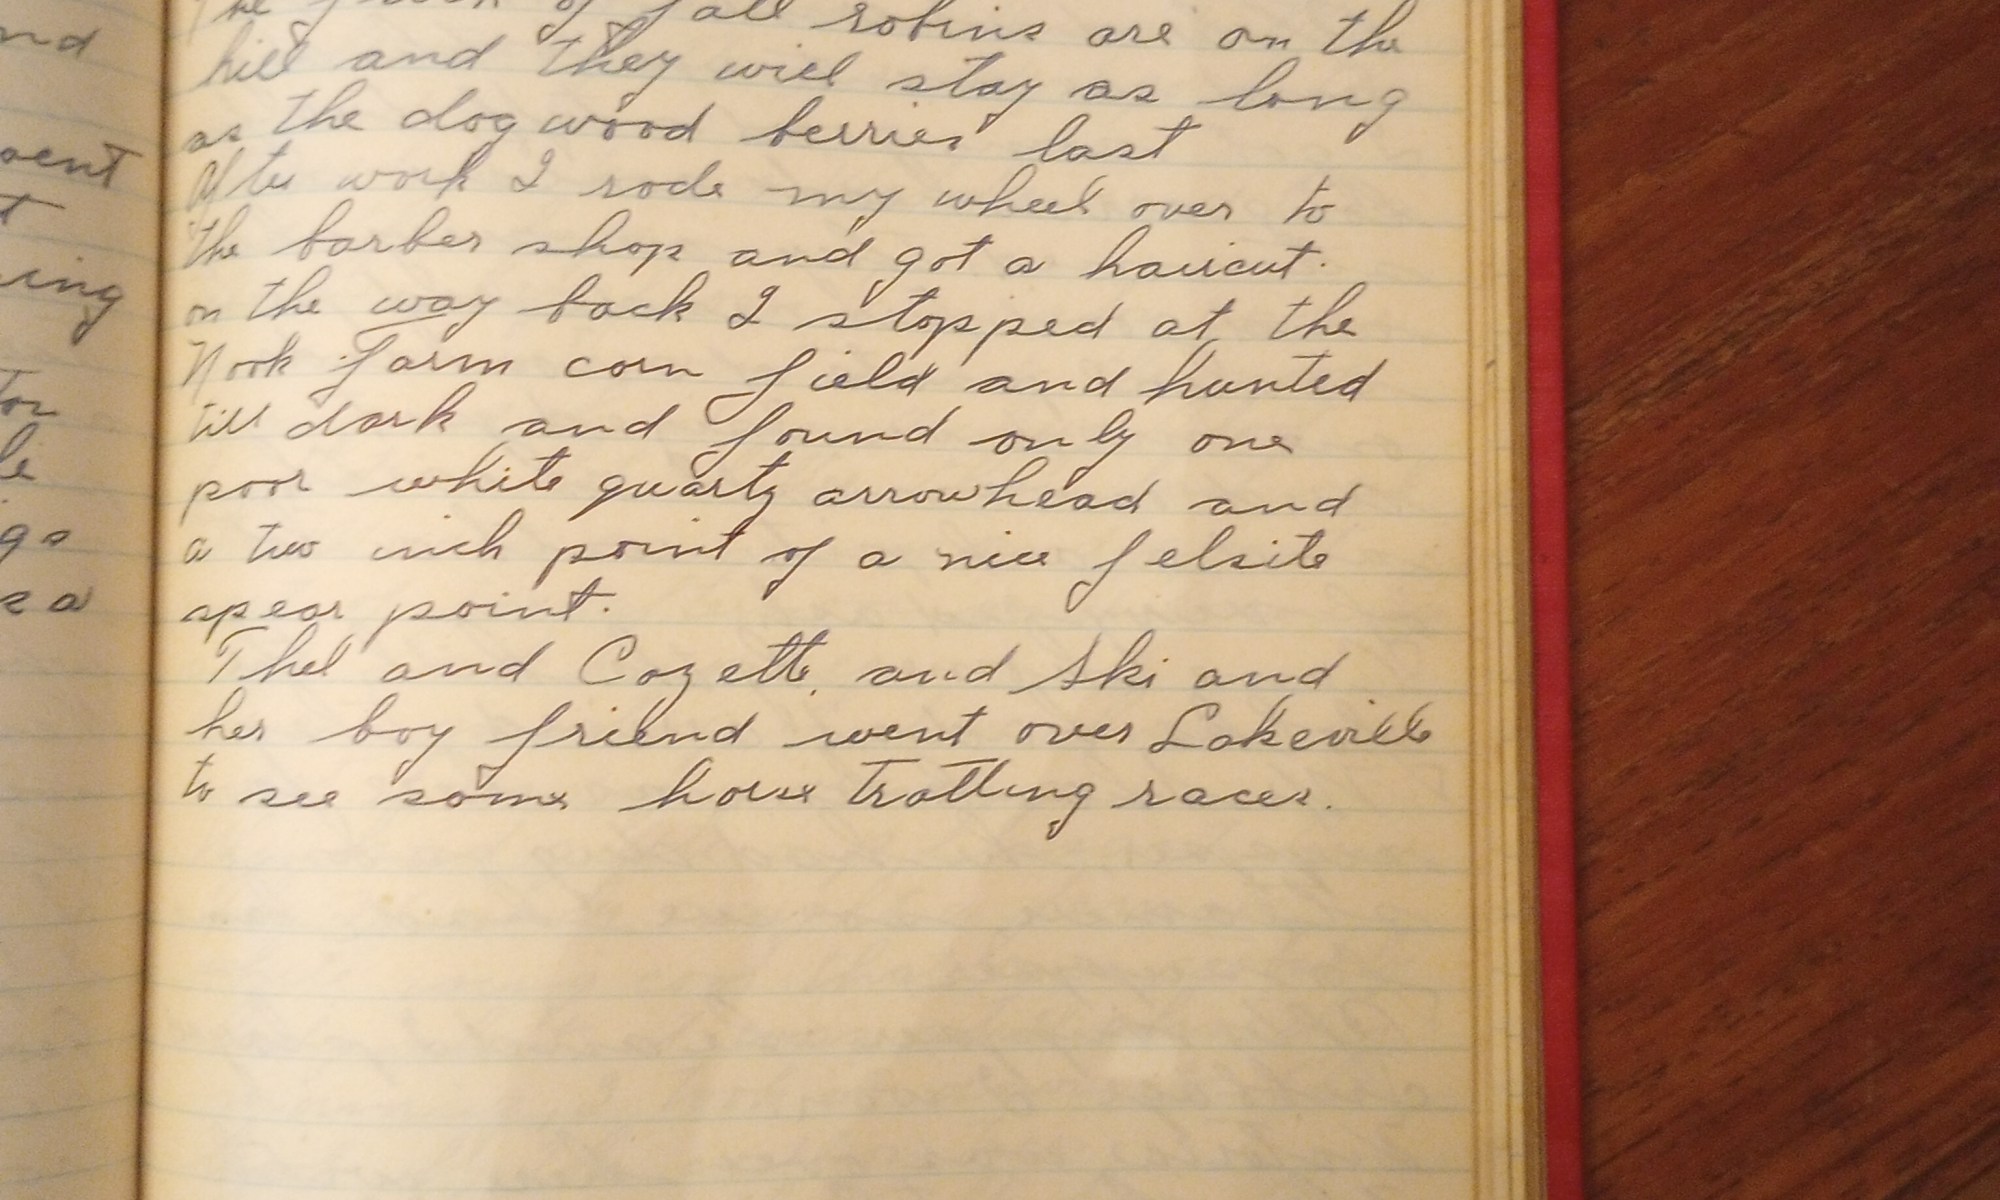 nd
oent
t
ing
Ton
le
gs
s a
The flock of fall robins are on the
hill and they will stay as long
as the dog wood berries last
After work I rode my wheel over to
the barber shop and got a haircut.
on the way back I stopped at the
Nook Farm corn field and hunted
till dark and found only one
poor white quartz arrowhead and
a two inch point of a nice felsite
spear point.
Thel and Cozette and Ski and
her boy friend went over Lakeville
to see some horse trotting races.